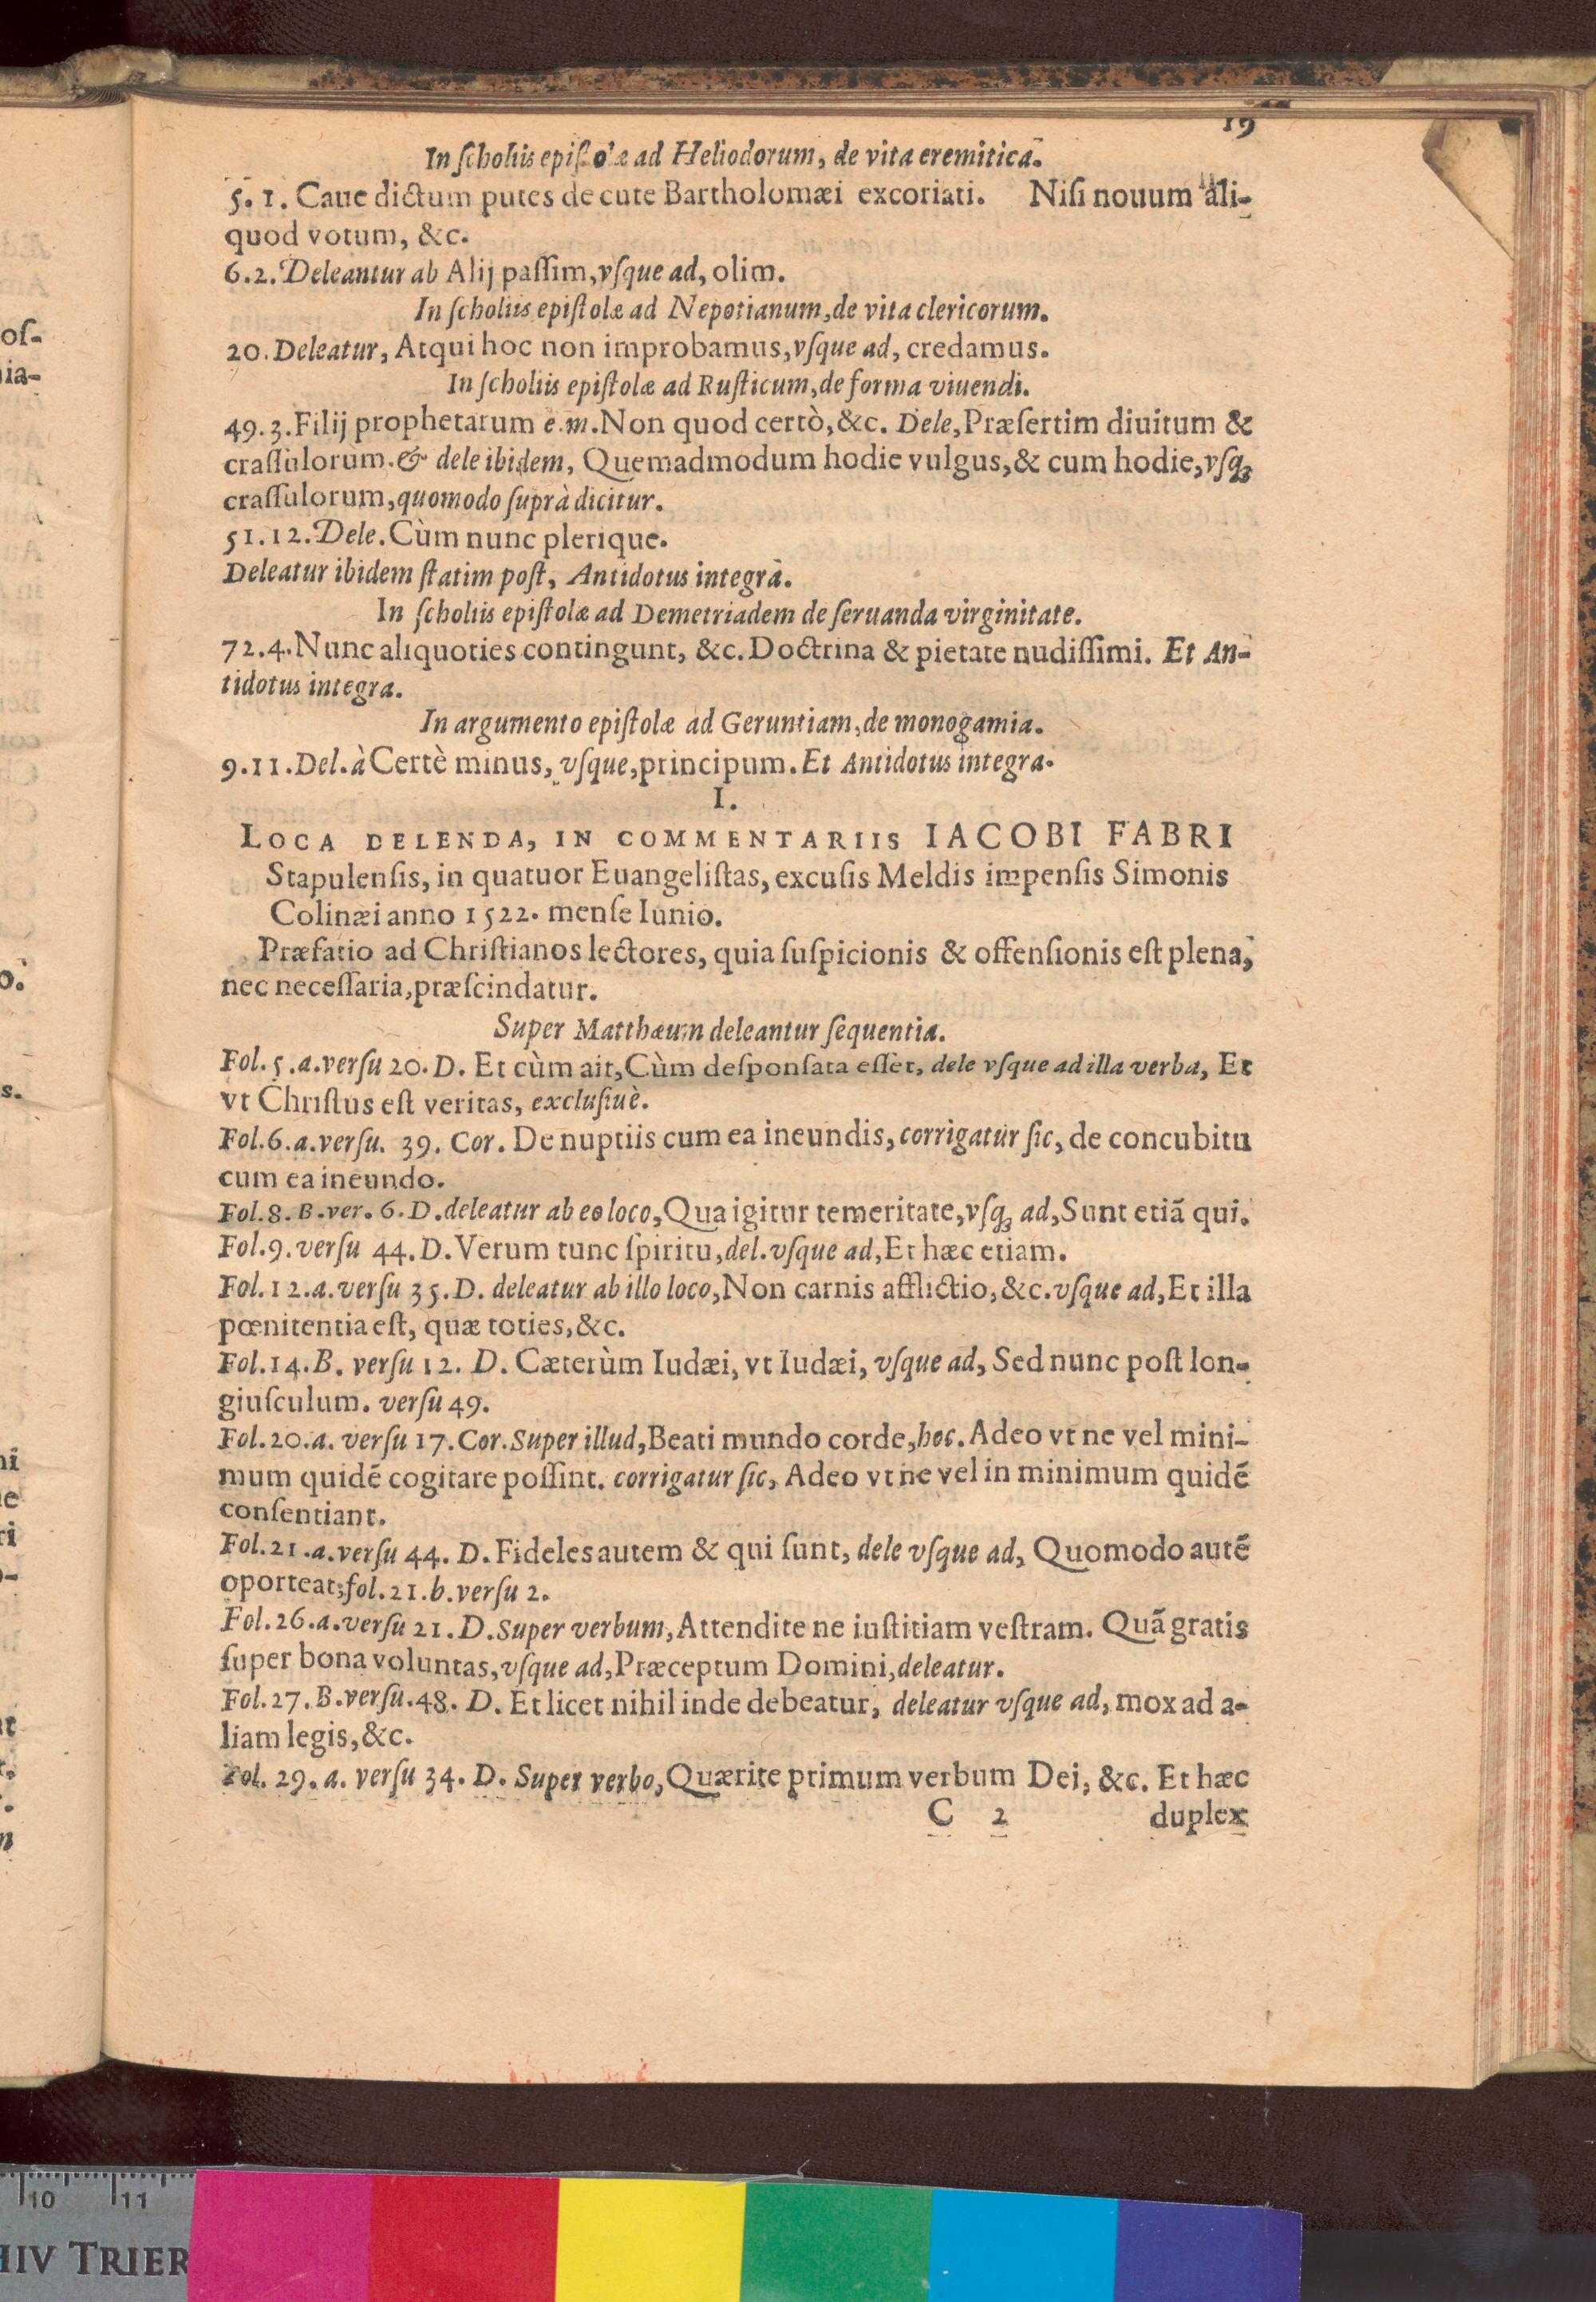 19
In ſcholiis epiſtolæ ad Heliodorum, de vita eremitica.
5. 1. Caue dictum putes de cute Bartholomæi excoriati. Niſi nouum ali-
quod votum, &c.
6.2. Deleantur ab Alij paſſim, vſque ad, olim.
In ſcholiis epiſtolæ ad Nepotianum, de vita clericorum.
20. Deleatur, Atqui hoc non improbamus, vſque ad, credamus.
In ſcholiis epiſtolæ ad Ruſticum, de forma viuendi.
49.3. Filij prophetarum e.m. Non quod certò, &c. Dele, Præſertim diuitum &
craſſulorum. & dele ibidem, Quemadmodum hodie vulgus, & cum hodie, vſq;
craſſulorum, quomodo ſuprà dicitur.
51.12. Dele. Cùm nunc plerique.
Deleatur ibidem ſtatim poſt, Antidotus integra.
In ſcholiis epiſtolæ ad Demetriadem de ſeruanda virginitate.
72.4. Nunc aliquoties contingunt, &c. Doctrina & pietate nudiſſimi. Et An-
tidotus integra.
In argumento epiſtolæ ad Geruntiam, de monogamia.
9.11. Del. à Certè minus, vſque, principum. Et Antidotus integra.
I.
LOCA DELENDA, IN COMMENTARIIS IACOBI FABRI
Stapulenſis, in quatuor Euangeliſtas, excuſis Meldis impenſis Simonis
Colinæi anno 1522. menſe Iunio.
Præfatio ad Chriſtianos lectores, quia ſuſpicionis & offenſionis eſt plena,
nec neceſſaria, præſcindatur.
Super Matthæum deleantur ſequentia.
Fol. 5. a. verſu 20. D. Et cùm ait, Cùm deſponſata eſſet, dele vſque ad illa verba, Et
vt Chriſtus eſt veritas, excluſiuè.
Fol. 6. a. verſu. 39. Cor. De nuptiis cum ea ineundis, corrigatur ſic, de concubitu
cum ea ineundo.
Fol. 8. B. ver. 6. D. deleatur ab eo loco, Qua igitur temeritate, vſq; ad, Sunt etiã qui.
Fol. 9. verſu 44. D. Verum tunc ſpiritu, del. vſque ad, Et hæc etiam.
Fol. 12. a. verſu 35. D. deleatur ab illo loco, Non carnis afflictio, &c. vſque ad, Et illa
pœnitentia eſt, quæ toties, &c.
Fol. 14. B. verſu 12. D. Cæterùm Iudæi, vt Iudæi, vſque ad, Sed nunc poſt lon-
giuſculum. verſu 49.
Fol. 20. a. verſu 17. Cor. Super illud, Beati mundo corde, hoc. Adeo vt ne vel mini-
mum quidẽ cogitare poſſint. corrigatur ſic, Adeo vt ne vel in minimum quidẽ
conſentiant.
Fol. 21. a. verſu 44. D. Fideles autem & qui ſunt, dele vſque ad, Quomodo autẽ
oporteat; fol. 21. b. verſu 2.
Fol. 26. a. verſu 21. D. Super verbum, Attendite ne iuſtitiam veſtram. Quã gratis
ſuper bona voluntas, vſque ad, Præceptum Domini, deleatur.
Fol. 27. B. verſu. 48. D. Et licet nihil inde debeatur, deleatur vſque ad, mox ad a-
liam legis, &c.
Fol. 29. a. verſu 34. D. Super verbo, Quærite primum verbum Dei, &c. Et hæc
C 2 duplex
10 11
HIV TRIER